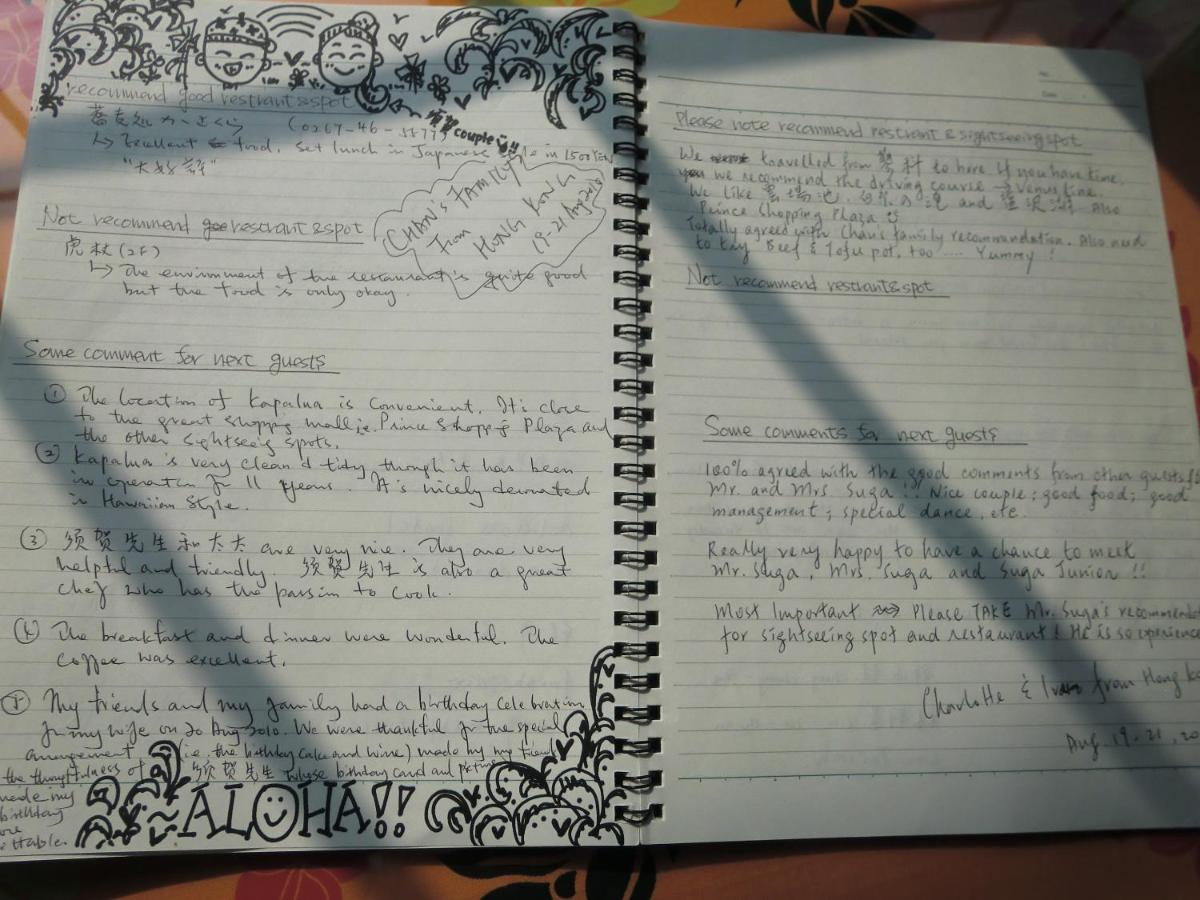 recommend good restrant&spot
(0267-46-5577)
須賀 couple!!
↳ Excellent food, set lunch in Japanese style in 1500 Yen
CHAN's FAMILY
From
HONG KONG
19-21 Aug 2010
Not recommend restrant&spot
虎杖 (2F)
↳ The environment of the restaurant is quite good
but the food is only okay.
Some comment for next guests
① The location of Kapalua is convenient. It's close
to the great shopping mall ie. Prince Shopping Plaza and
the other sightseeing spots.
② Kapalua is very clean & tidy though it has been
in operation for 11 years. It's nicely decorated
in Hawaiian style.
③ 须贺先生和太太 are very nice. They are very
helpful and friendly. 须贺先生 is also a great
chef who has the passion to cook.
④ The breakfast and dinner were wonderful. The
coffee was excellent.
⑤ My friends and my family had a birthday celebration
for my wife on 20 Aug 2010. We were thankful for the special
arrangement (i.e. the birthday cake and wine) made by my friend
the thoughtfulness of 须贺先生 whose birthday card and picture
made my
birthday
~ALOHA!!
Please note recommend restrant & sightseeing spot
We travelled from to here. If you have time,
we recommend the driving course → Venus line.
We like and Also
Prince Shopping Plaza
Totally agreed with Chan's family recommendation. Also need
to try Beef & Tofu pot, too .... Yummy!
Not recommend restrant&spot
Some comments for next guests
100% agreed with the good comments from other guests for
Mr. and Mrs. Suga!! Nice couple; good food; good
management; special dance, etc.
Really very happy to have a chance to meet
Mr. Suga, Mrs. Suga and Suga Junior!!
Most Important ⇝ Please TAKE Mr. Suga's recommend
for sightseeing spot and restaurant! He is so experience
Charlotte & Ivan from Hong Ko
Aug. 19-21, 20